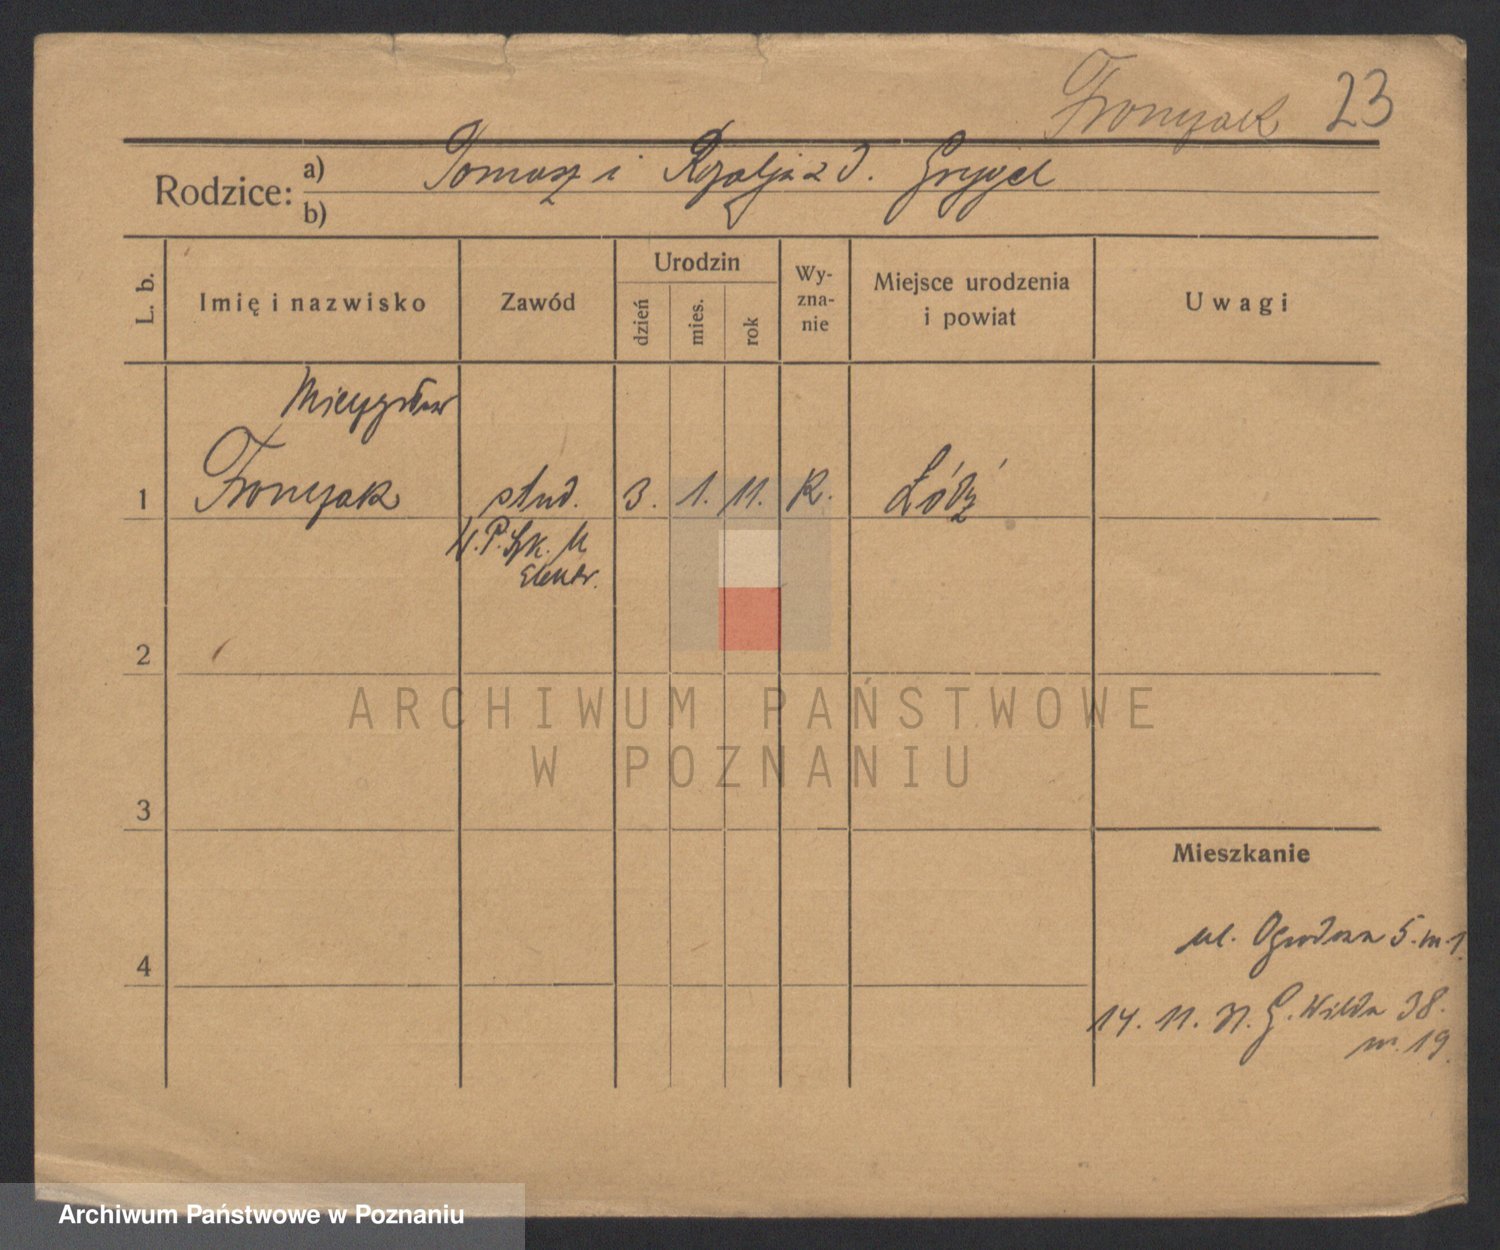 Fronczak 23
Rodzice: a) Tomasz i Rozalja z d. Grygel
b)
L. b.
Imię i nazwisko
Zawód
Urodzin
dzień
mies.
rok
Wy-
zna-
nie
Miejsce urodzenia
i powiat
Uwagi
Mieczysław
1 Fronczak stud. 3. 1. 11. R. Łódź
W. P. Szk. M
Elektr.
2
3
Mieszkanie
ul. Ogrodowa 5. m. 1
4
14. 11. 31. G. Wilda 38.
m. 19.
ARCHIWUM PAŃSTWOWE
W POZNANIU
Archiwum Państwowe w Poznaniu